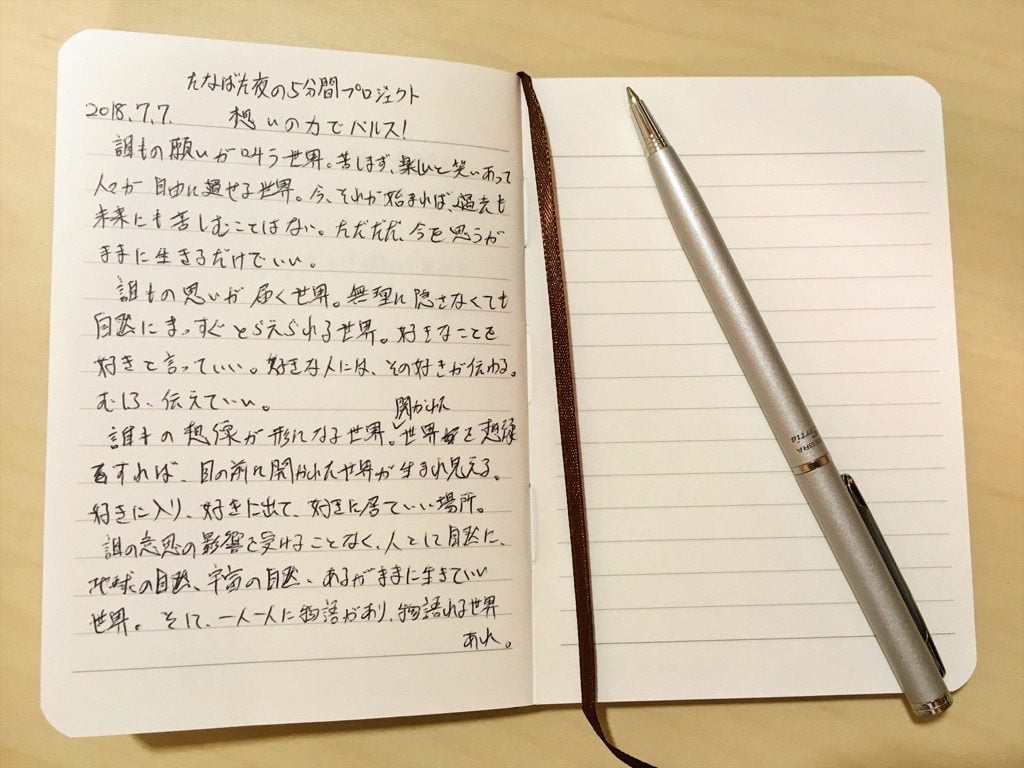 たなばた夜の5分間プロジェクト
2018.7.7. 想いの力でバルス!
誰もの願いが叶う世界。苦しまず、楽しいと笑いあって
人々が自由に過せる世界。今、それが始まれば、過去も
未来にも苦しむことはない。ただただ、今を思うが
ままに生きるだけでいい。
誰もの思いが届く世界。無理に隠さなくても
自然にまっすぐとらえられる世界。好きなことを
好きと言っていい。好きな人には、その好きが伝わる。
むしろ、伝えていい。
開かれた
誰もの想像が形になる世界。世界を想像
すれば、目の前に開かれた世界が生まれ見える。
好きに入り、好きに出て、好きに居ていい場所。
誰の意思の影響を受けることなく、人として自然に、
地球の自然、宇宙の自然、あるがままに生きていい
世界。そして、一人一人に物語があり、物語れる世界
あれ。
ZEBRA